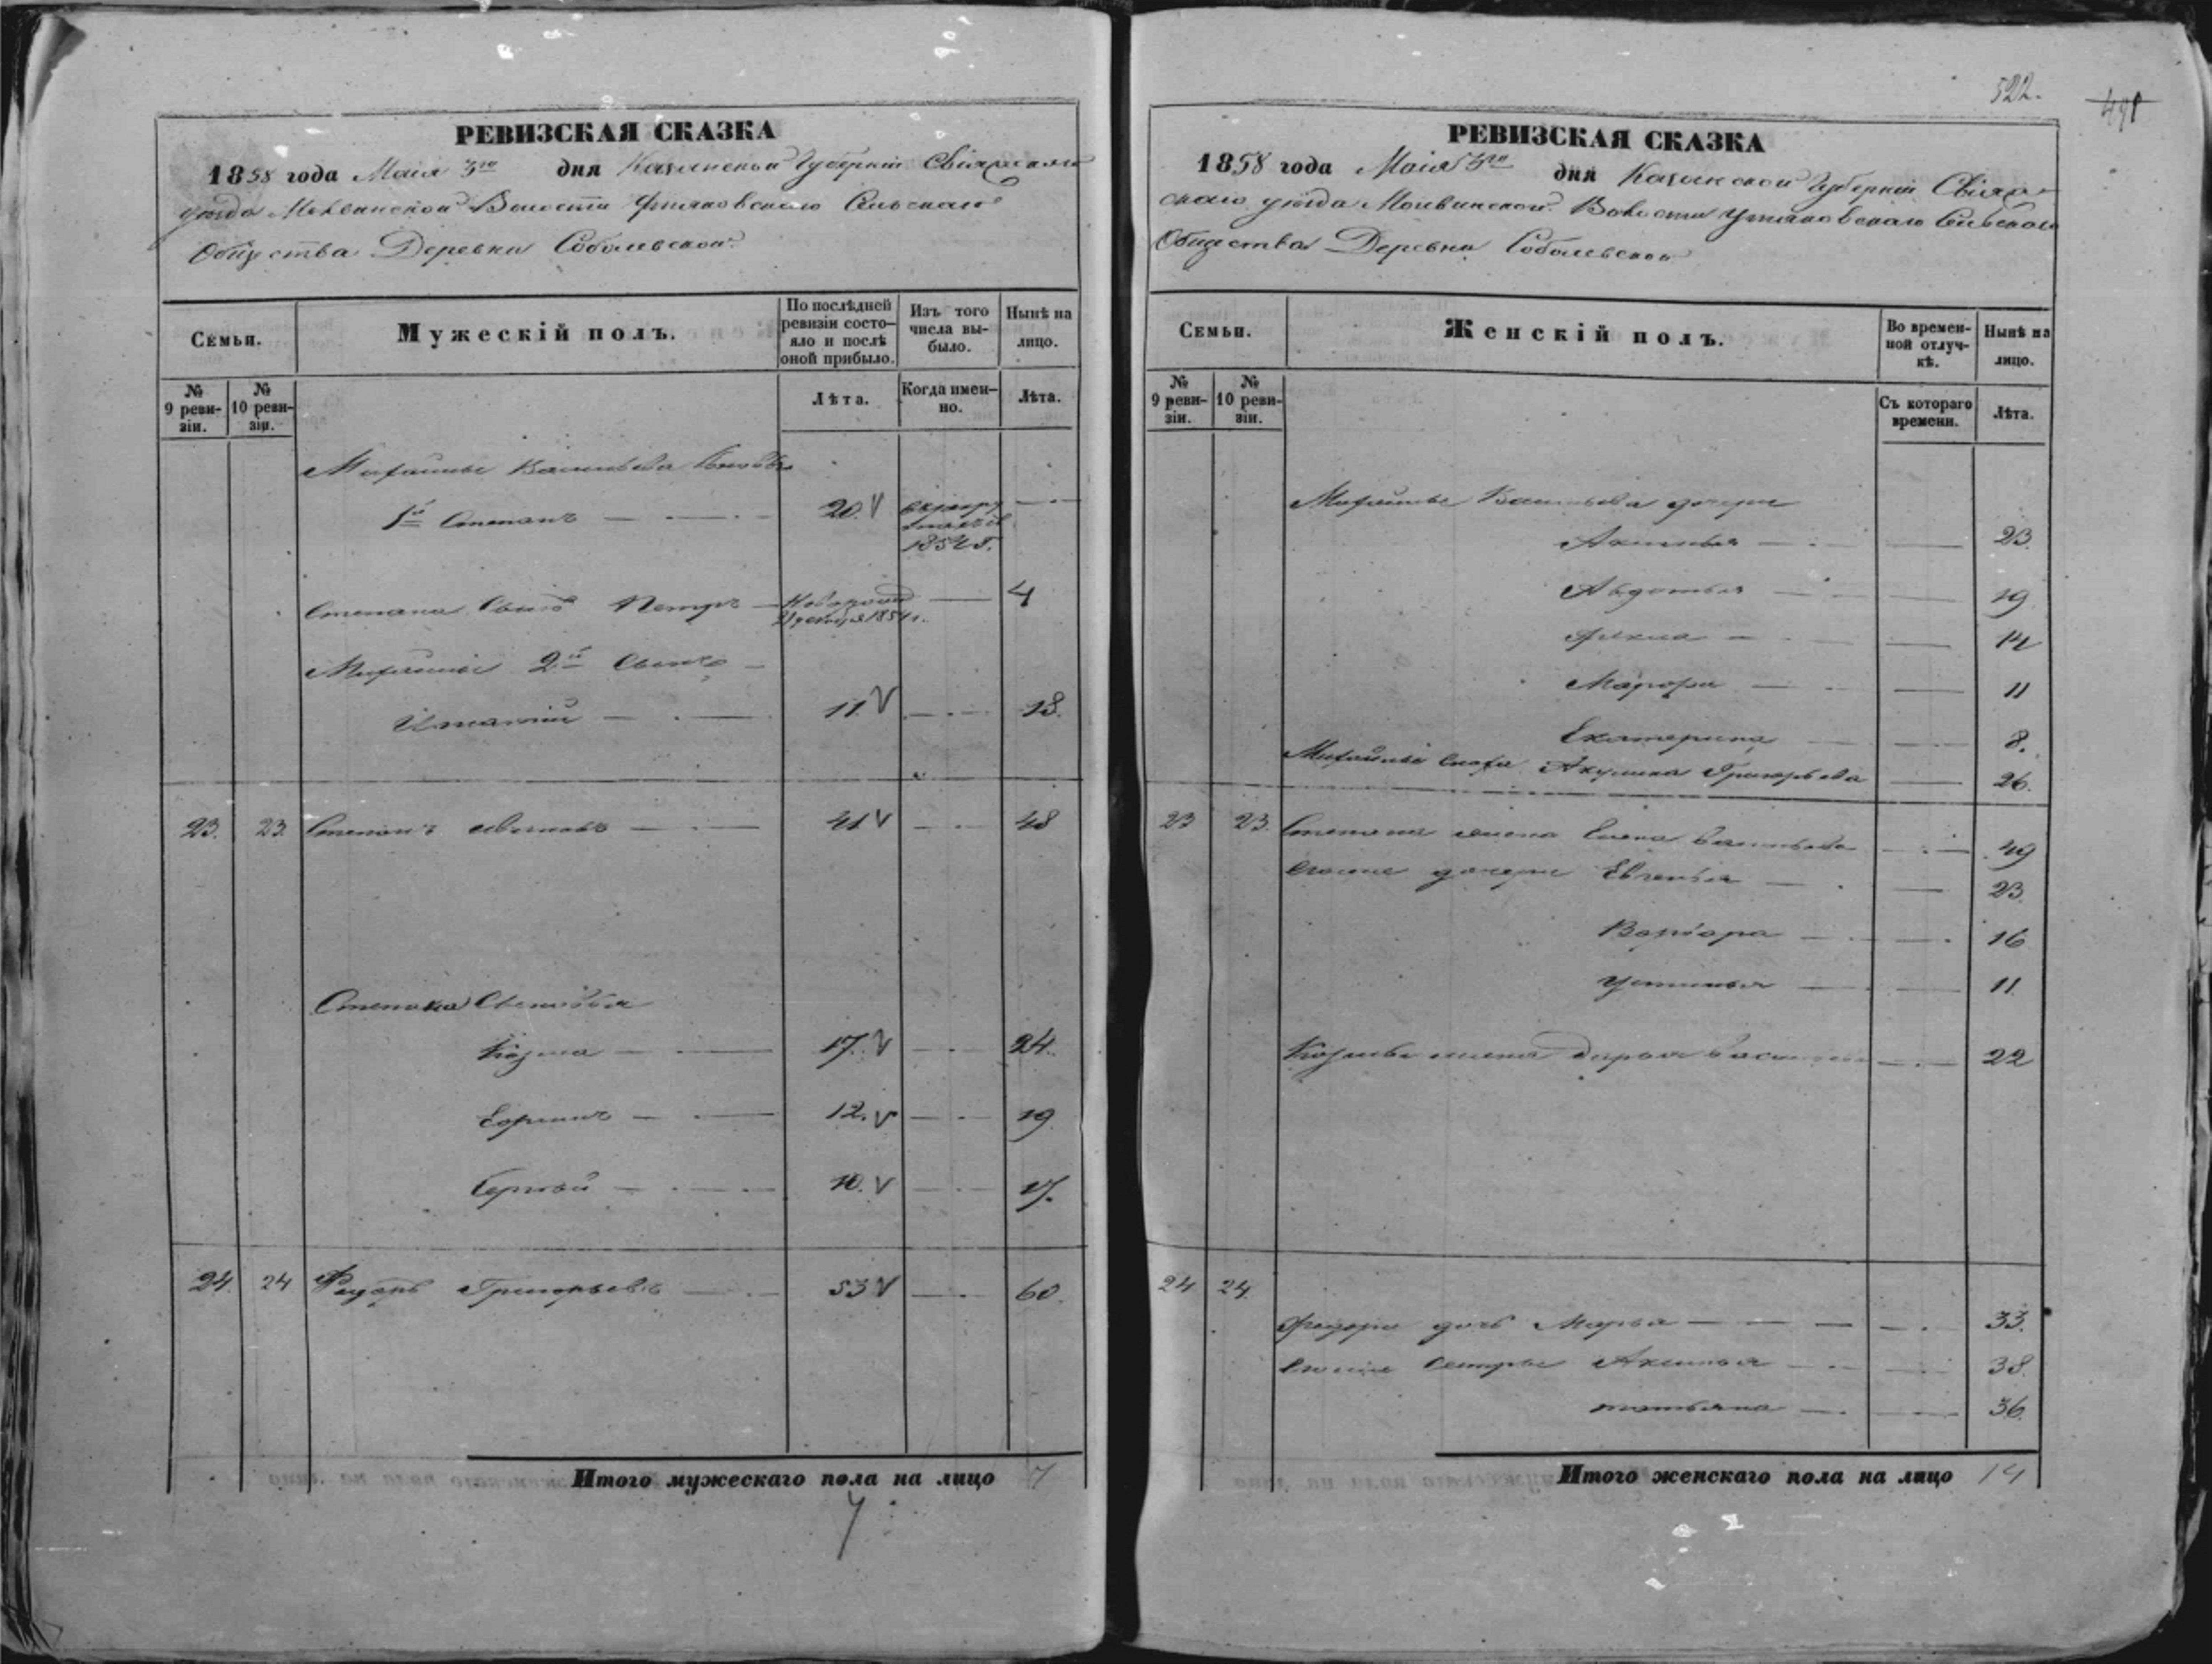 522.
491
РЕВИЗСКАЯ СКАЗКА
1858 года Маія 3го дня Казанской Губерніи Свіяжскаго
уѣзда Волости Утяковскаго Сельскаго
Общества Деревни Соболевской
Семьи.
Мужескій полъ.
По послѣдней ревизіи состо-
яло и послѣ
оной прибыло.
Изъ того
числа вы-
было.
Нынѣ на
лицо.
№
9 реви-
зіи.
№
10 реви-
зіи.
Лѣта.
Когда имен-
но.
Лѣта.
Михайлы Васильева
1й Степанъ 20
1854 г.
Степана Сынъ Петръ 4
Михайлы 2й Сынъ
Игнатій 11 18.
23. 23. Степанъ Ивановъ 41 48
Степана Сыновья
Козма 17. 24.
12. 19.
Сергѣй 10. 17.
24. 24 Федоръ Григорьевъ 53 60.
Итого мужескаго пола на лицо 7
7
РЕВИЗСКАЯ СКАЗКА
1858 года Маія 3го дня Казанской Губерніи Свіяж-
скаго уѣзда Волости Утяковскаго Сельскаго
Общества Деревни Соболевской
Семьи.
Женскій полъ.
Во времен-
ной отлуч-
кѣ.
Нынѣ на
лицо.
№
9 реви-
зіи.
№
10 реви-
зіи.
Съ котораго
времени.
Лѣта.
Михайлы Васильева дочери
Аксинья 23.
Авдотья 19
14
Марфа 11
Екатерина 8.
Михайлы сноха Акулина Григорьева 26.
23 23. Степана жена Елена Васильева 49
дочери Евгенья 23.
Варвара 16
Устинья 11.
Козмы жена Дарья 22
24 24.
Федора дочь Марья 33.
сестры Аксинья 38.
Татьяна 36.
Итого женскаго пола на лицо 14